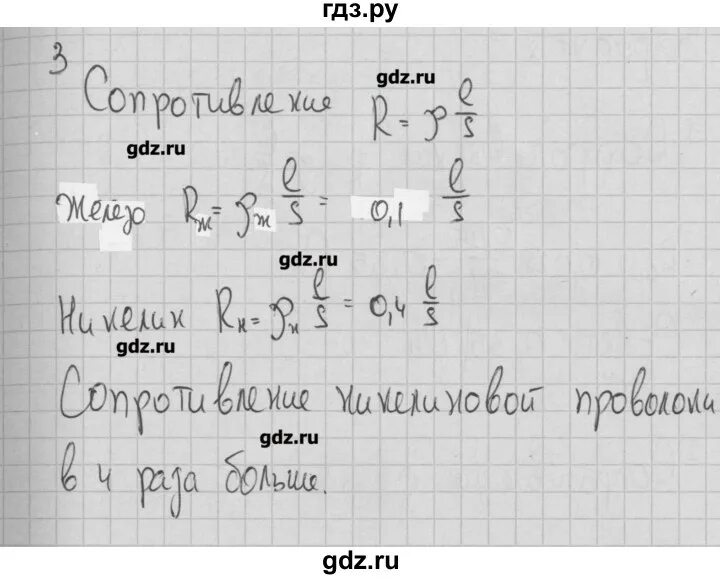 гдз.ру
3
gdz.ru
Сопротивление R = ρ l/s
gdz.ru
Железо Rж = ρж l/s = 0,1 l/s
gdz.ru
Никелин Rн = ρн l/s = 0,4 l/s
gdz.ru
Сопротивление никелиновой проволоки
gdz.ru
в 4 раза больше.
gdz.ru